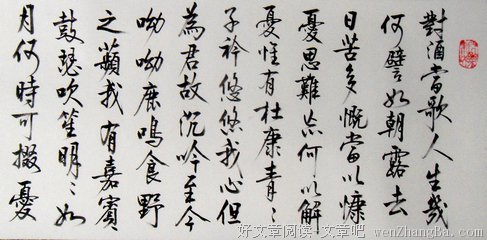 對酒當歌人生幾
何譬如朝露去
日苦多慨當以慷
憂思難忘何以解
憂惟有杜康青〻
子衿悠悠我心但
為君故沉吟至今
呦呦鹿鳴食野
之蘋我有嘉賓
鼓瑟吹笙明〻如
月何時可掇憂
好文章阅读-文章吧 wenZhangBa.com